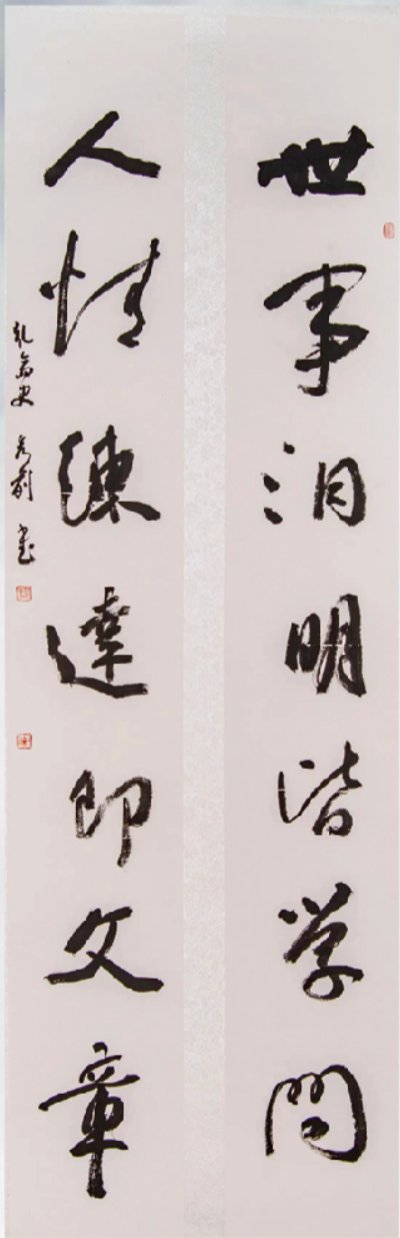 世事洞明皆学問
人情練達即文章